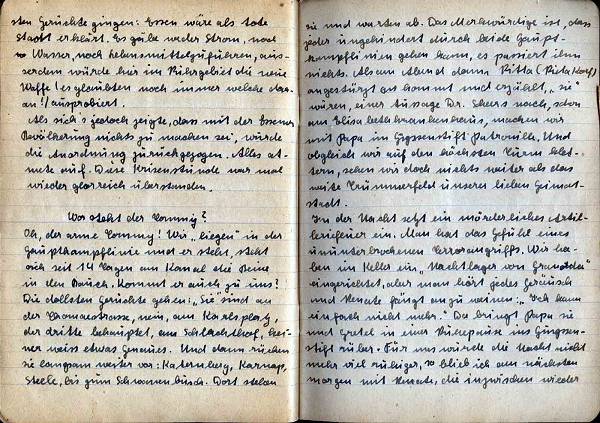 sten Gerüchte gingen: Essen wäre als tote
Stadt erklärt. Es gäbe weder Strom, noch
Wasser, noch Lebensmittelzuführen, aus-
serdem würde hier im Ruhrgebiet die neue
Waffe (es glaubten noch immer welche dar-
an!) ausprobiert.
Als sich's jedoch zeigte, dass mit der Essener
Bevölkerung nichts zu machen sei, wurde
die Anordnung zurückgezogen. Alles at-
mete auf. Diese Krisenstunde war mal
wieder glorreich überstanden.
Wo steht der Tommy?
Oh, der arme Tommy! Wir „liegen" in der
Hauptkampflinie und er steht, steht
sich seit 14 Tagen am Kanal die Beine
in den Bauch. Kommt er auch zu uns?
Die dollsten Gerüchte gehen: „Sie sind an
der Cranaestrasse, nein, am Karlsplatz,
der dritte behauptet, am Schlachthof, kei-
ner weiss etwas Genaues. Und dann rücken
sie langsam weiter vor: Katernberg, Karnap,
Steele, bis zum Schwanenbusch. Dort stehen
sie und warten ab. Das Merkwürdige ist, dass
jeder ungehindert durch beide Haupt-
kampflinien gehen kann, es passiert ihm
nichts. Als am Abend dann Ritta
angestürzt kommt und erzählt, „sie"
wären, einer Aussage Dr. Scheres nach, schon
am Elisabethkrankenhaus, machen wir
mit Papa im Huyssenstift Patrouille. Und
obgleich wir auf den höchsten Turm klet-
tern, sehen wir doch nichts weiter als das
weite Trümmerfeld unserer lieben Heimat-
stadt.
In der Nacht setzt ein mörderisches Artil-
leriefeuer ein. Man hat das Gefühl eines
ununterbrochenen Terrorangriffs. Wir ha-
ben im Keller ein „Nachtlager von Granada"
eingerichtet, aber man hört jedes Geräusch
und Renate fängt an zu weinen: „Ich kann
einfach nicht mehr." Da bringt Papa sie
und Gretel in einer Feuerpause ins Huyssen-
stift rüber. Für uns würde die Nacht nicht
mehr viel ruhiger, so blieb ich am nächsten
Morgen mit Renate, die inzwischen wieder